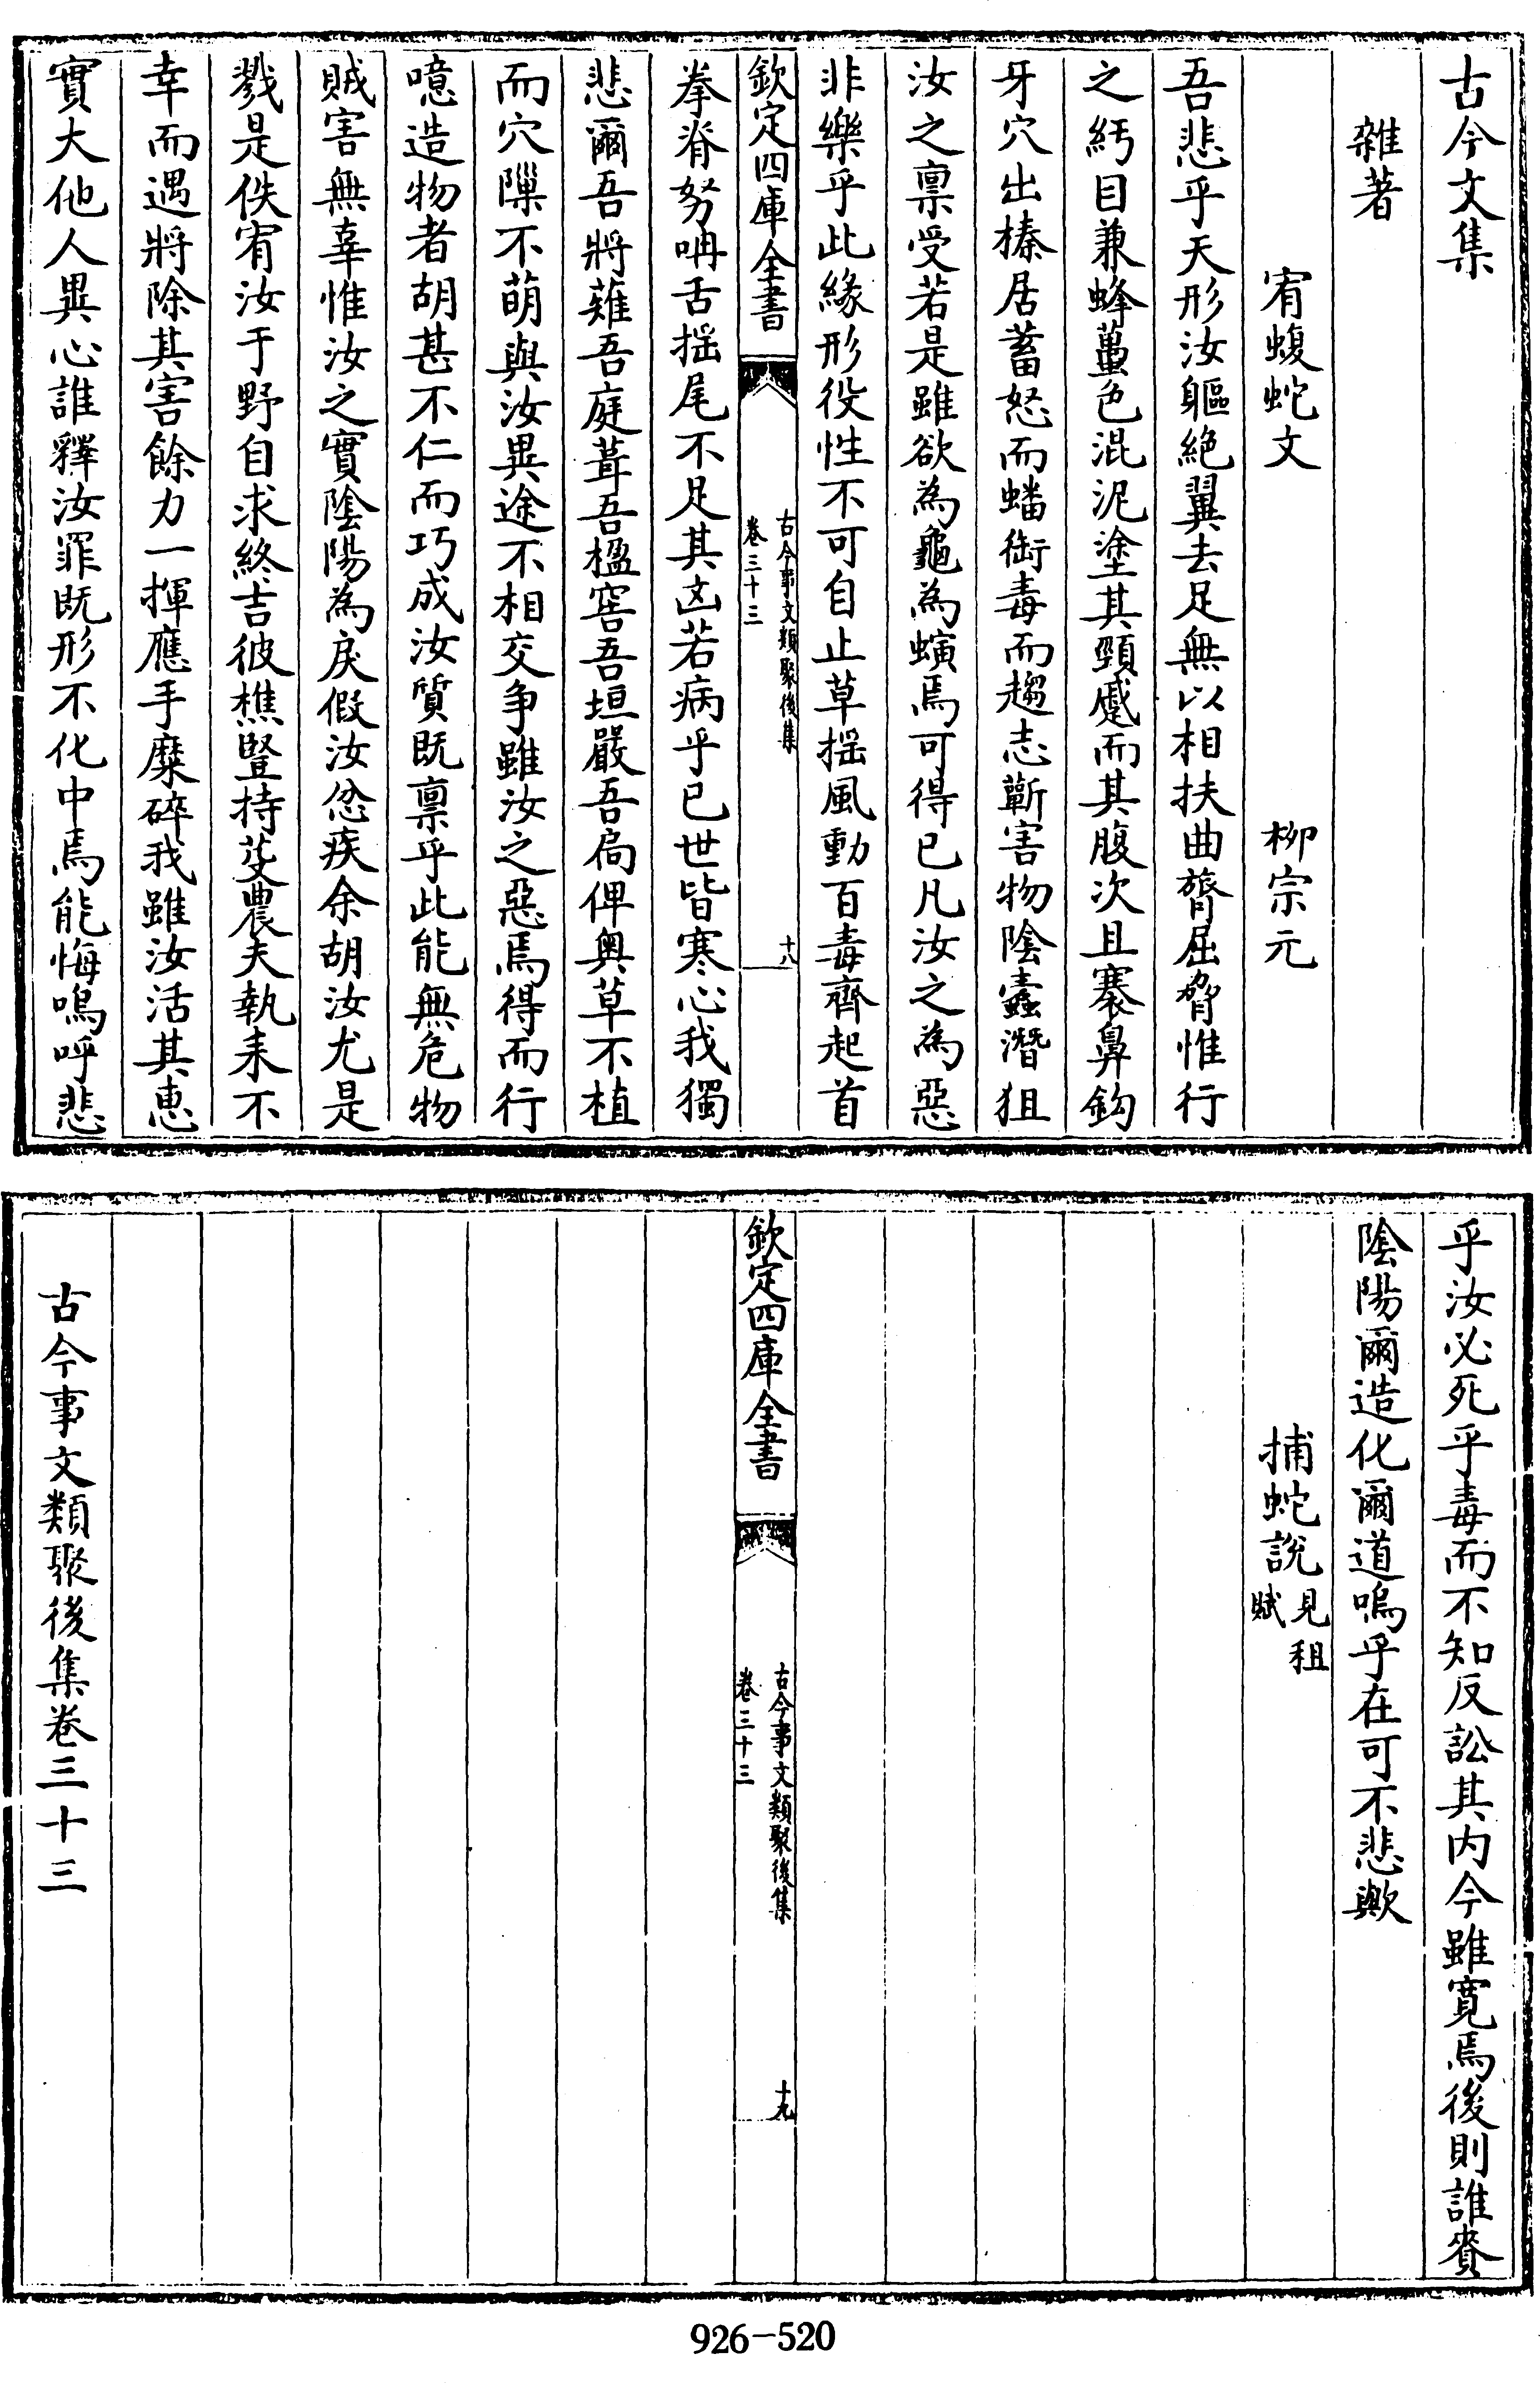 古今文集
雜著
宥蝮蛇文　柳宗元
吾悲乎天形汝軀絶翼去足無以相扶曲膂屈脅惟行
之紆目兼蜂蠆色混泥塗其頸蹙而其腹次且褰鼻鈎
牙穴出榛居蓄怒而蟠銜毒而趨志蘄害物陰蠹潛狙
汝之禀受若是雖欲為龜為螾焉可得已凡汝之為惡
非樂乎此緣形役性不可自止草揺風動百毒齊起首
欽定四庫全書
古今事文類聚後集
卷三十三
十八
拳脊努呥舌揺尾不足其凶若病乎已世皆寒心我獨
悲爾吾將薙吾庭葺吾楹窖吾垣嚴吾扃俾奥草不植
而穴隟不萌與汝異途不相交争雖汝之惡焉得而行
噫造物者胡甚不仁而巧成汝質既禀乎此能無危物
賊害無辜惟汝之實陰陽為戾假汝忿疾余胡汝尤是
戮是佚宥汝于野自求終吉彼樵豎持芟農夫執耒不
幸而遇將除其害餘力一揮應手糜碎我雖汝活其惠
實大他人異心誰釋汝罪既形不化中焉能悔嗚呼悲
乎汝必死乎毒而不知反訟其内今雖寛焉後則誰賚
陰陽爾造化爾道嗚乎在可不悲歟
捕蛇説見租賦
欽定四庫全書
古今事文類聚後集
卷三十三
十九
古今事文類聚後集卷三十三
926-520